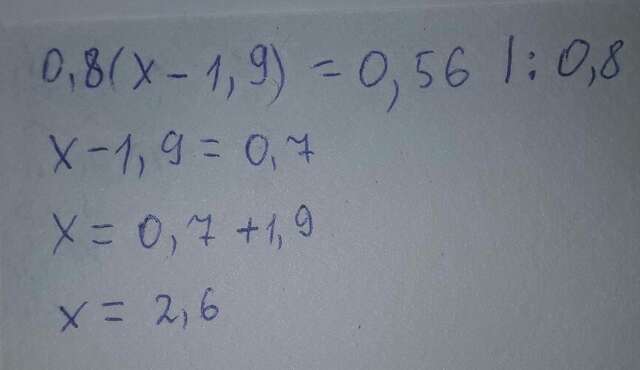 0,8(x-1,9) = 0,56 |: 0,8
x-1,9 = 0,7
x = 0,7 +1,9
x = 2,6